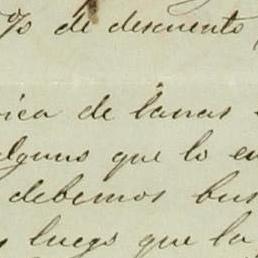 % de descuento
ica de lanas
alguno que lo en
debemos bus
luego que la